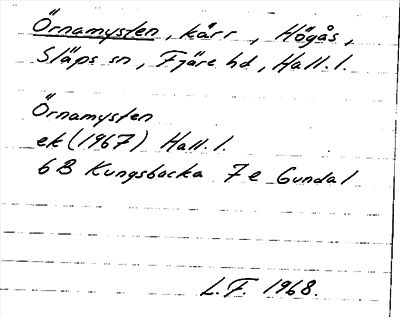 Örnamysten, kärr, Högås,
Släps sn, Fjäre hd, Hall. l.
Örnamysten
ek (1967) Hall. l.
6B Kungsbacka 7e Gundal
L.F. 1968.